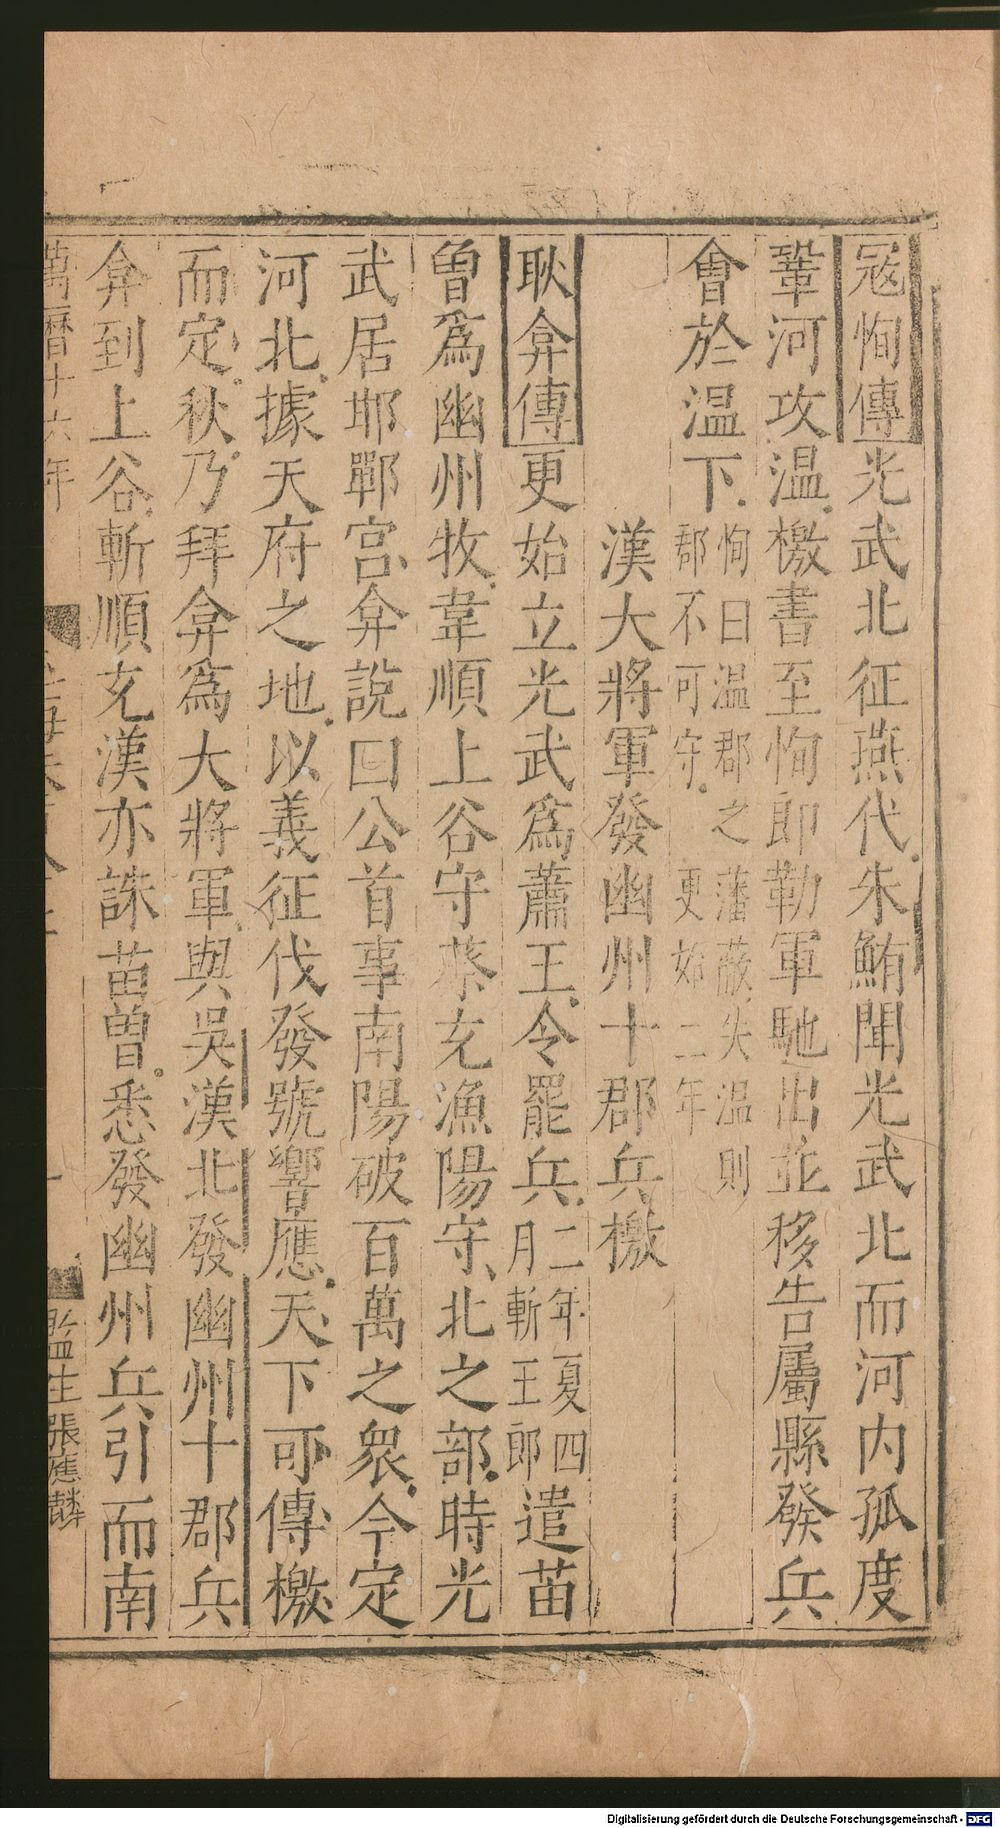 寇恂傳光武北征燕代朱鮪聞光武北而河内孤度
鞏河攻温檄書至恂即勒軍馳出並移告屬縣發兵
會於温下恂曰温郡之藩蔽失温則郡不可守更始二年
漢大將軍發幽州十郡兵檄
耿弇傳更始立光武爲蕭王令罷兵二年夏四月斬王郎遣苗
曽爲幽州牧韋順上谷守蔡充漁陽守北之部時光
武居邯鄲宫弇説曰公首事南陽破百萬之衆今定
河北據天府之地以義征伐發號響應天下可傳檄
而定秋乃拜弇爲大將軍與吳漢北發幽州十郡兵
弇到上谷斬順充漢亦誅苗曽悉發幽州兵引而南
萬曆十六年
監生張應麟
Digitalisierung gefördert durch die Deutsche Forschungsgemeinschaft - DFG